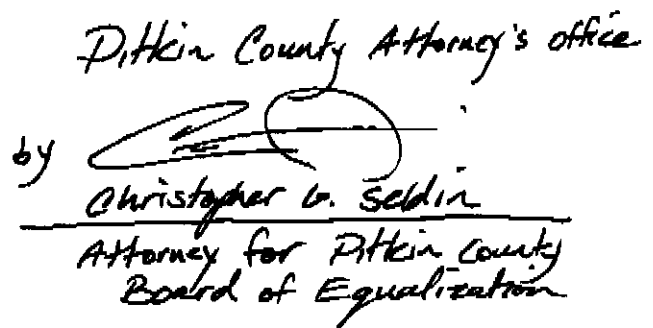 Pitkin County Attorney's office
by
Christopher G. Seldin
Attorney for Pitkin County
Board of Equalization